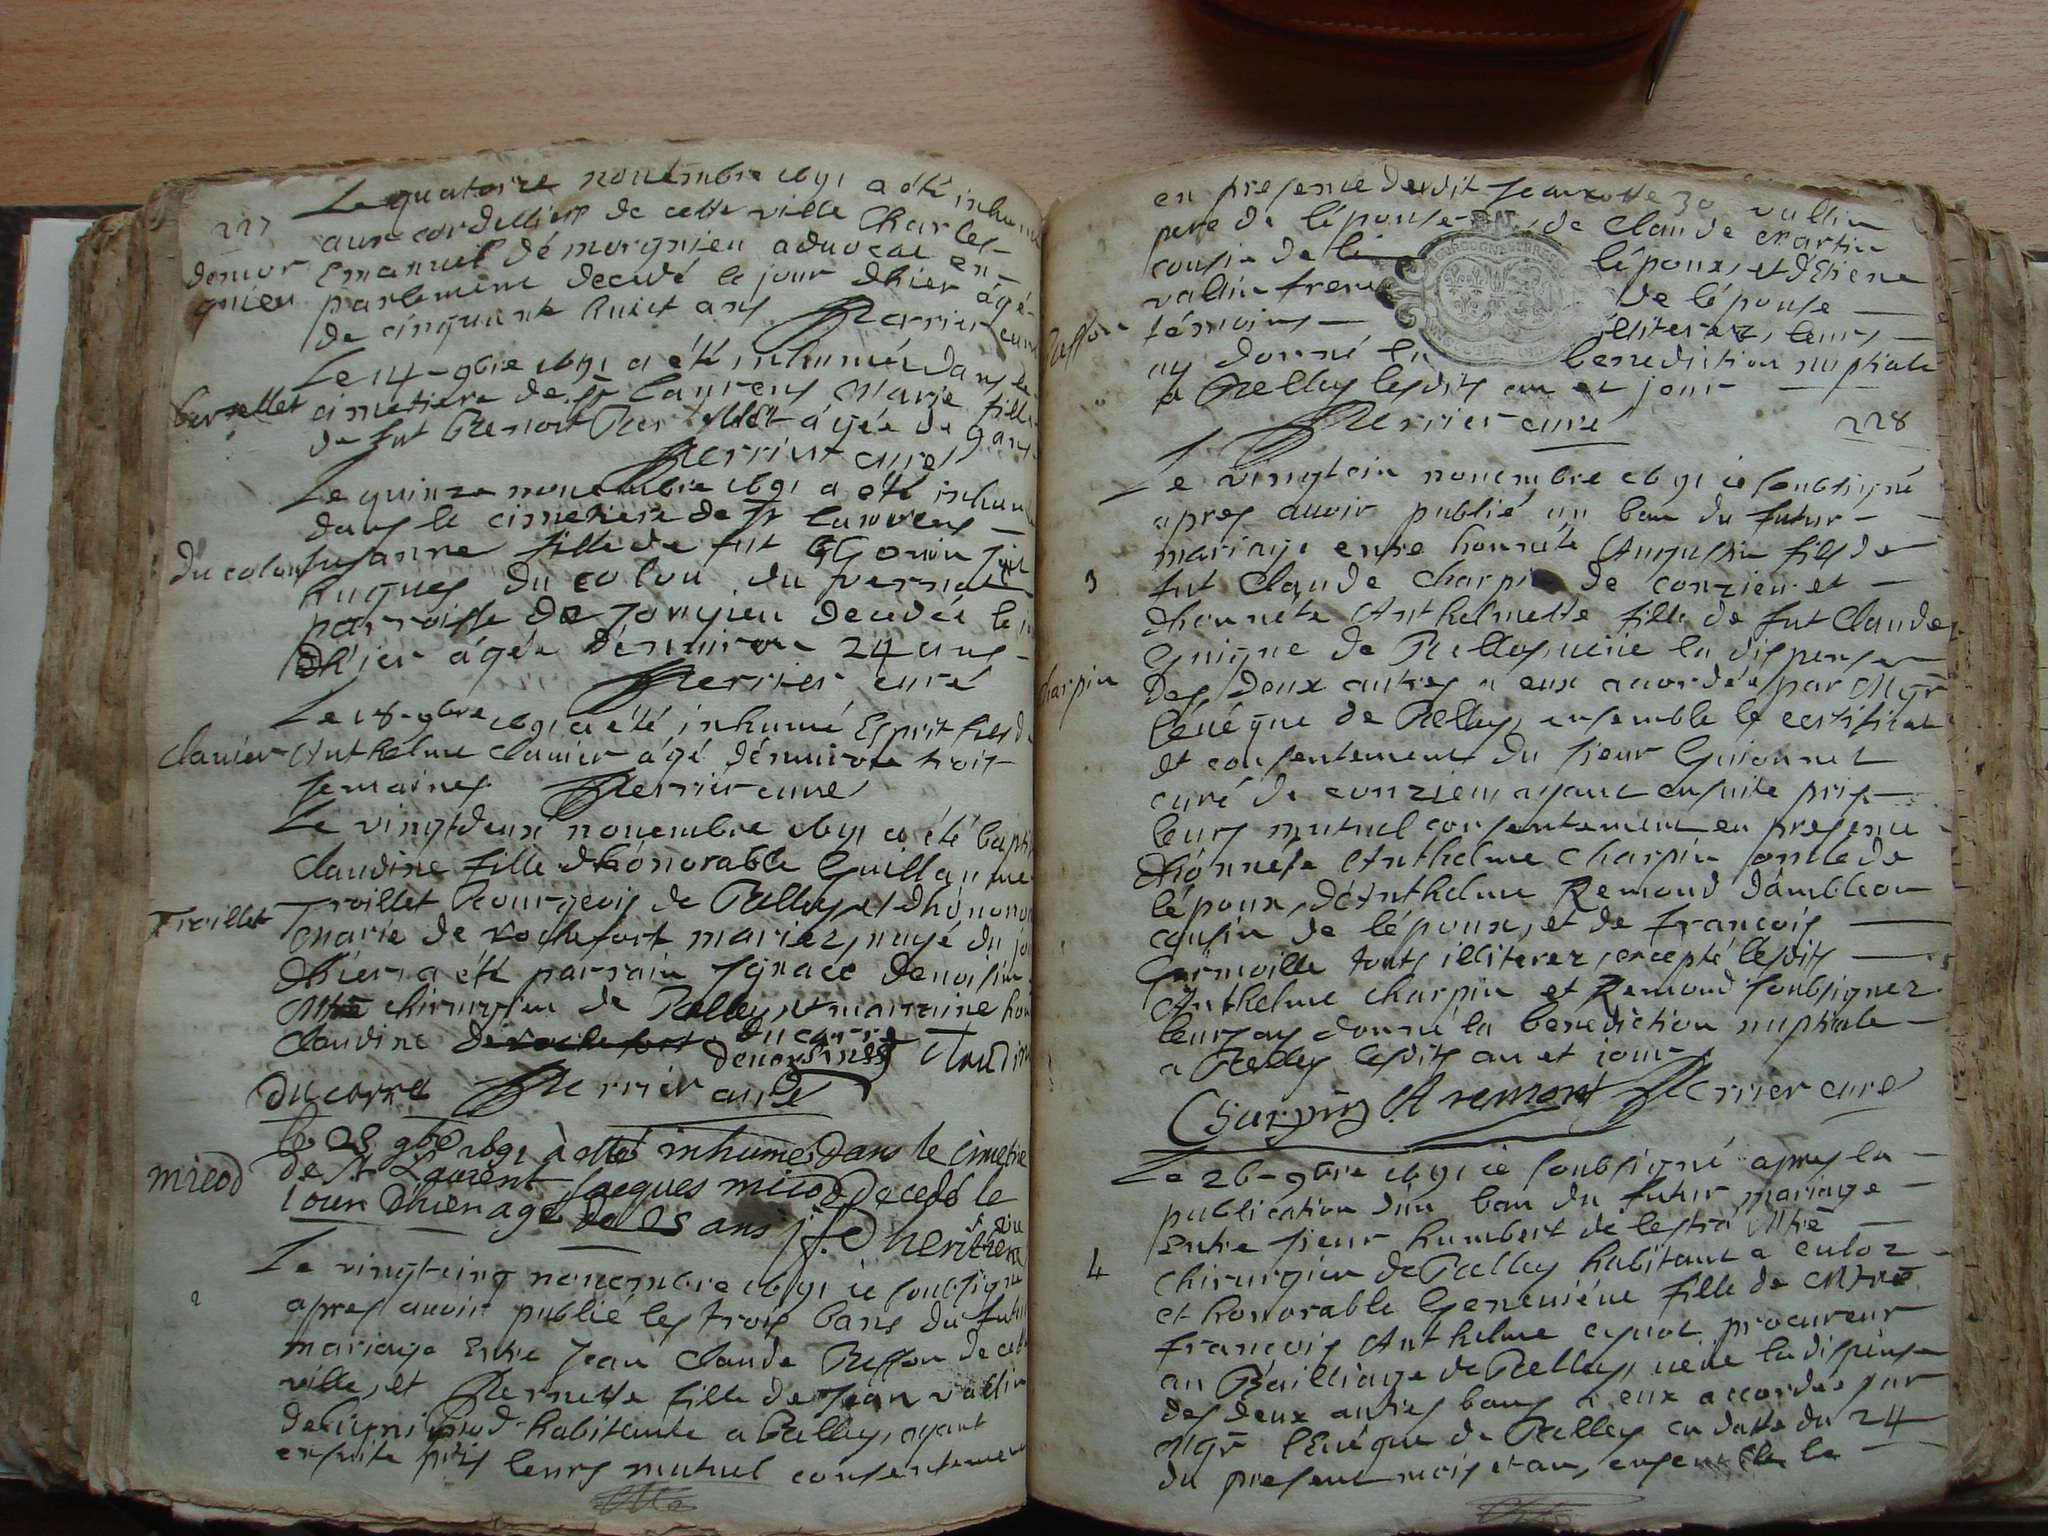 Le quatorze novembre 1691 a été inhumé
227
aux cordelliers de cette ville Charles
demor Emanuel démorgnieu advocat en
gnieu parlement decedé le jour dhier agé
de cinquante huict ans Perrier curé
Le 14 9bre 1691 a été inhumée dans le
bertellet cimetiere de St Laurens Marie fille
de fut Benoit Bertellet agée de 9 ans
Perrier curé
Le quinze novembre 1691 a été inhumée
dans le cimetiere de St Laurens
Du colou susanne fille de fut
hugues du colou du
parroisse de Jongieu decedée le
dhier agée dénviron 24 ans
Perrier curé
Le 18 9bre 1691 a été inhumé Esprit fils de
Clavier Anthelme Clavier agé dénviron trois
semaines Perrier curé
Le vingtdeux novembre 1691 a été baptisé
Claudine fille dhonorable Guillaume
Troillet Troillet Bourgeois de Belley et dhonorable
Marie de Rochefort mariez, nayé du jour
dhier a été parrain Ignace
Mtre chirurgien de Belley et marraine
Claudine de rochefort du carre
Claudine
du carre Perrier curé
Le 25 9bre 1691 à etté inhumé dans le cimetire
micod de St Laurent Jacques micod decedé le
iour dhier agé de 25 ans
Le vingtcinq novembre 1691 ie soubsigné
2 apres avoir publié les trois bans du futur
mariage Entre Jean Claude Buffon de cette
ville, et Pernette fille de Jean vallin
de habitante a Belley, ayant
ensuite pris leurs mutuel consentement
en presence dudit Jean vallin
pere de l'épouse de Claude Martin
cousin de l'époux, et d'Etiene
vallin frere de l'épouse
Buffon témoins illiterez, leurs
ay donné la benediction nuptiale
a Belley lesdits an et jour
Perrier curé
228
Le vingtcin novembre 1691 ie soubsigné
apres avoir publié un ban du futur
mariage entre honnéte Augustin fils de
3 fut Claude Charpin de conzieu et
dhonnéte Anthelmette fille de fut Claude
Guigue de Belley, veüe la dispense
charpin des deux autres a eux accordée par Mgr
l'évéque de Belley, ensemble le certificat
et consentement du sieur Guionnet
curé de conzieu, ayant ensuite pris
leurs mutuel consentement en presence
dhonnéte Anthelme Charpin oncle de
l'époux, d'Anthelme Remond d'ambleon
cousin de l'époux, et de François
touts illiterez, excepté lesdits
Anthelme Charpin et Remond soubsignez
leurs ay donné la benediction nuptiale
a Belley lesdits an et jour
Charpin A remont Perrier curé
Le 26 9bre 1691 ie soubsigné apres la
publication d'un ban du futur mariage
entre sieur humbert de lestra Mtre
4 chirurgien de Belley habitant a culoz
et honorable Genevieve fille de Mtre
François Anthelme procureur
au Bailliage de Belley, veüe la dispense
des deux autres bans a eux accordée par
Mgr l'Evéque de Belley en datte du 24
du present mois et an, ensemble le